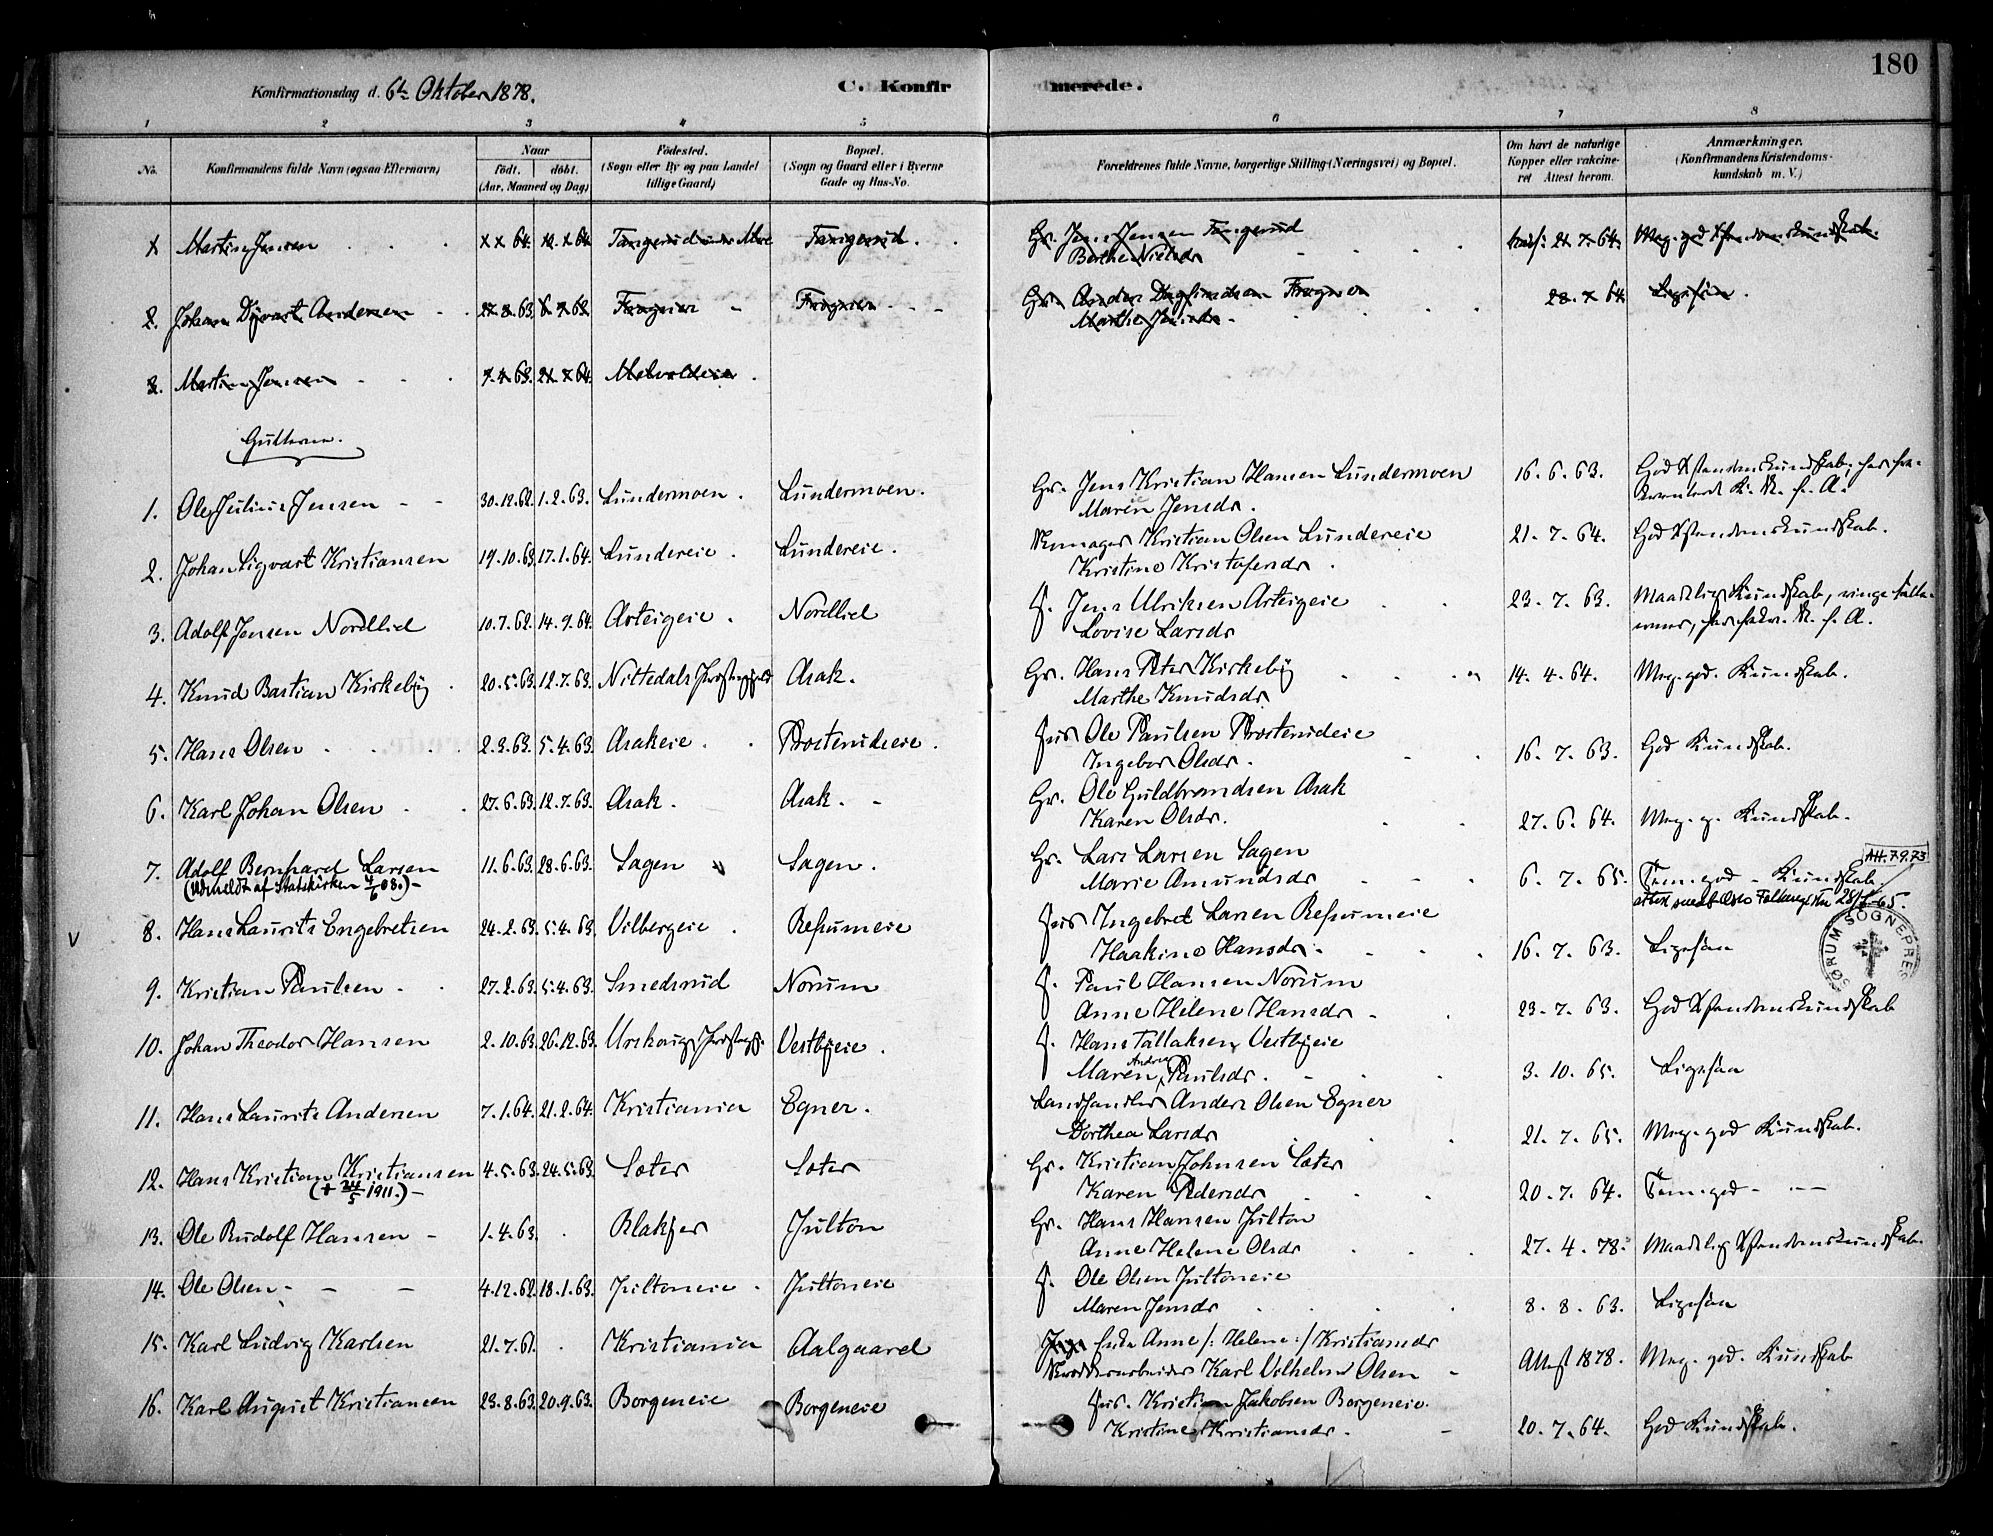 180
Konfirmationsdag d. 6te Oktober 1878.
C. Konfirmerede.
1 2 3 4 5 6 7 8
No.
Konfirmandens fulde Navn (ogsaa Efternavn)
Naar
født. døbt.
(Aar, Maaned og Dag)
Fødested.
(Sogn eller By og paa Landet
tillige Gaard)
Bopæl.
(Sogn og Gaard eller i Byerne
Gade og Hus-No.
Forældrenes fulde Navne, borgerlige Stilling (Næringsvei) og Bopæl.
Om havt de naturlige
Kopper eller vakcine-
ret Attest herom.
Anmærkninger.
(Konfirmandens Kristendoms-
kundskab m. V.)
Martin Jensen 64. 64 Tangerud Tangerud. Gr. Jens Jensen Tangerud 21. 7. 64.
Berthe Nielsdr
2. Johan Andersen 63 63 Gr. Anders 64
Marthe
3. Martin Jensen 63. 64.
Gutterne.
1. Ole Julius Jensen - - 30.12.62. 1.2.63. Lundermoen. Lundermoen. Gr. Jens Kristian Hansen Lundermoen 16. 6. 63.
Maren Jensdr.
2. Johan Sigvart Kristiansen 19.10.63. 17.1.64. Lundereie. Lundereie. Kristian Olsen Lundereie 21. 7. 64. God Xstendomskundskab.
Kristine Kristofersdr.
3. Adolf Jensen Nordlid 10.7.62. 14.9.64. Asteigeie. Nordlid Jens Ulriksen Asteigeie 23. 7. 63. Maadelig Kundskab,
Lovise Larsdr
4. Knud Bastian Kirkebÿ 20.5.63. 12.7.63. Nittedals Præstegjeld Asak. Gr. Hans Peter Kirkebÿ 14. 4. 64. Meg. god. Kundskab.
Marthe Knudsdr
5. Hans Olsen 2.3.63. 5.4.63. Asakeie. Prostenudeie. Hus Ole Paulsen Prostenudeie 16. 7. 63. God Kundskab.
Ingebor Olsdr.
6. Karl Johan Olsen 27.6.63. 12.7.63. Asak. Asak. Gr. Ole Guldbrandsen Asak 27. 6. 64. Meg. g. Kundskab.
Karen Olsdr.
7. Adolf Bernhard Larsen 11.6.63. 28.6.63. Sagen Sagen. Gr. Lars Larsen Sagen 6. 7. 65. Tem. god - Kundskab
(Udmeldt af Statskirken 4/6 08.) - Marie Amundsdr AH. 7.9.73
V 8. Hans Laurits Engebretsen 24.2.63. 5.4.63. Vilbergeie. Refsumeie Hus Ingebret Larsen Refsumeie 16. 7. 63. Ligesaa
Haakine Hansdr.
SØRUM SOGNEPRES
9. Kristian Paulsen 27.2.63. 5.4.63. Smedsrud Norum Paul Hansen Norum 23. 7. 63. God Xstendomskundskab
Anne Helene Hansdr
10. Johan Theodor Hansen 2.10.63. 26.12.63. Urskougs Præstegj. Vestbÿeie. Hans Tallaksen Vestbÿeie 3. 10. 65. Ligesaa
Maren Andrea Paulsdr.
11. Hans Laurits Andersen 7.1.64. 21.2.64. Kristiania Egner. Landhandler Anders Olsen Egner 21. 7. 65. Meg. god Kundskab.
Dorthea Larsdr
12. Hans Kristian Kristiansen 4.5.63. 24.5.63. Sæter Sæter Gr. Kristian Johnsen Sæter 20. 7. 64. Tem. god - - -
(+ 24/5 1911.) - Karen Pedersdr
13. Ole Rudolf Hansen - 1.4.63. Blakjer Jülton Gr. Hans Hansen Jülton 27. 4. 78. Maadelig Xstendomskundskab.
Anne Helene Olsdr
14. Ole Olsen - - - 4.12.62. 18.1.63. Jültoneie. Jültoneie Ole Olsen Jültoneie 8. 8. 63. Ligesaa
Maren Jensdr
15. Karl Ludvig Karlsen 21.7.61. Kristiania Aalgaard Anne /: Helene :/ Kristiansdr Attest 1878. Meg. god. Kundskab
Karl Vilhelm Olsen
16. Karl August Kristiansen 23.8.63. 20.9.63. Borgeneie Borgeneie Hus. Kristian Jakobsen Borgeneie. 20. 7. 64. God Kundskab.
Kristine Kristiansdr.